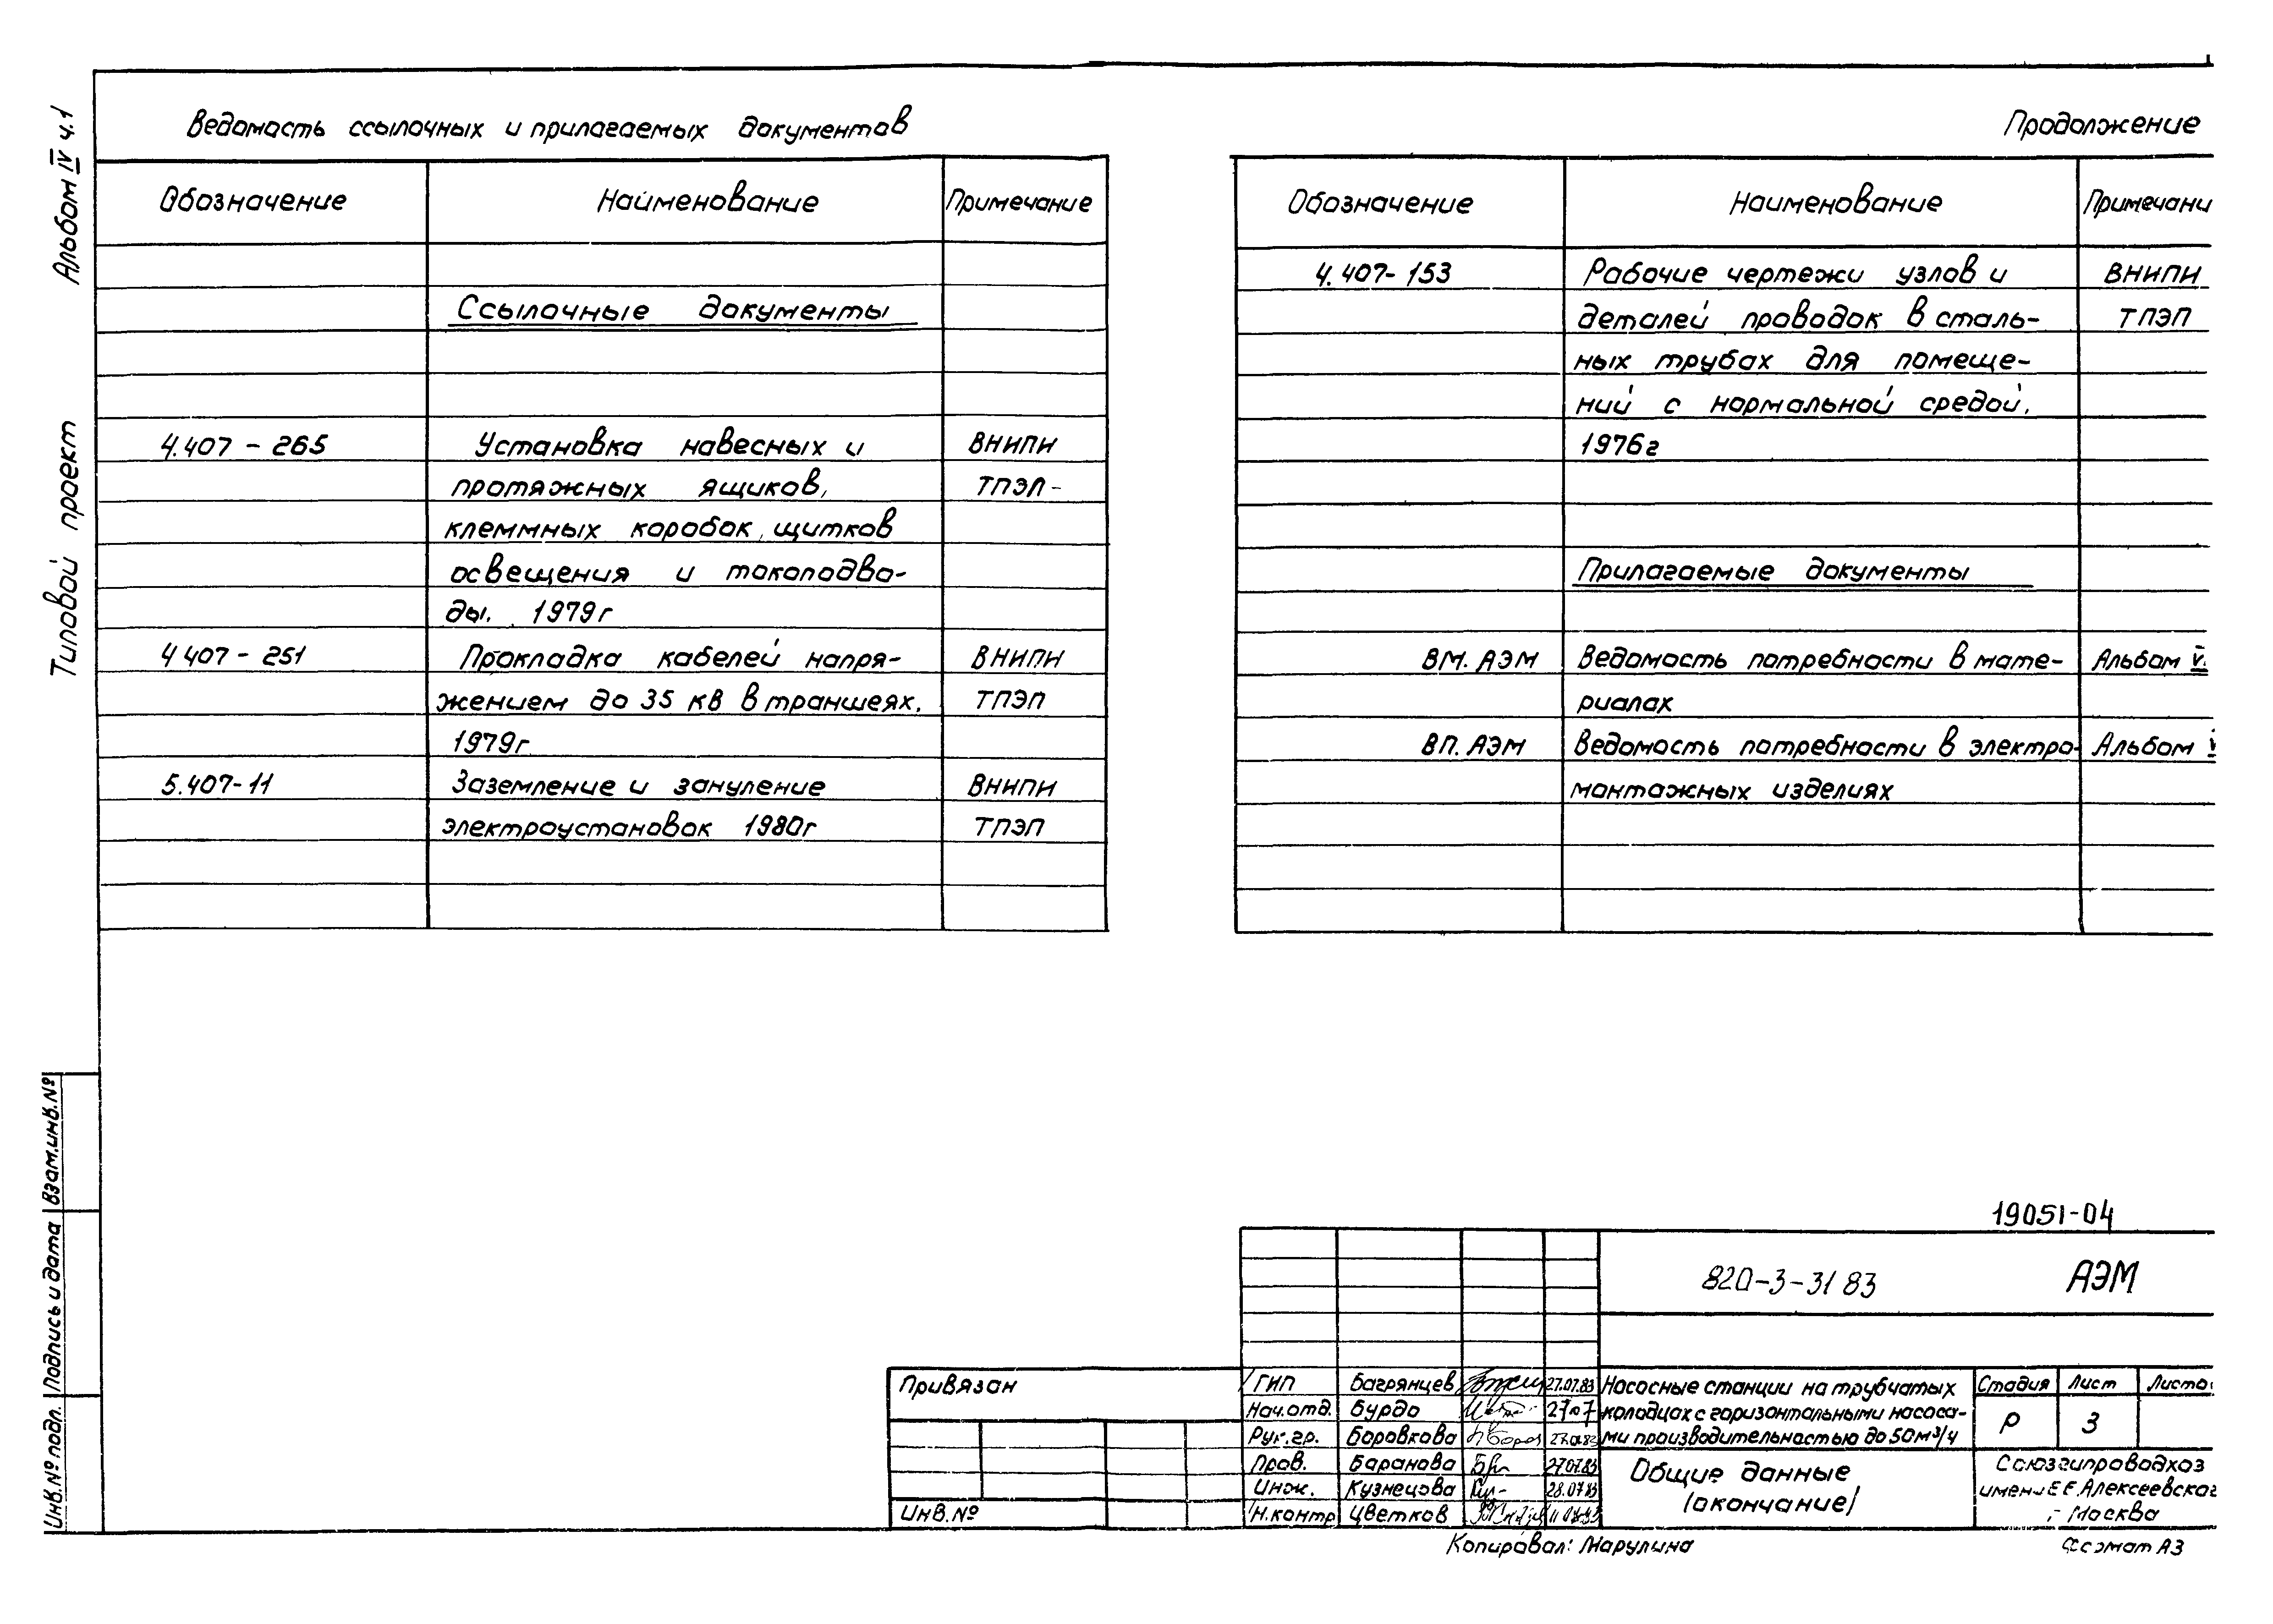 Альбом IV ч.1
Типовой проект
Ведомость ссылочных и прилагаемых документов
Обозначение Наименование Примечание
Ссылочные документы
4.407-265 Установка навесных и ВНИПИ
протяжных ящиков, ТПЭП-
клеммных коробок, щитков
освещения и токоподво-
ды. 1979г
4 407-251 Прокладка кабелей напря- ВНИПИ
жением до 35 кв в траншеях. ТПЭП
1979г
5.407-11 Заземление и зануление ВНИПИ
электроустановок 1980г ТПЭП
Продолжение
Обозначение Наименование Примечани
4.407-153 Рабочие чертежи узлов и ВНИПИ
деталей проводок в сталь- ТПЭП
ных трубах для помеще-
ний с нормальной средой.
1976г
Прилагаемые документы
ВМ. АЭМ Ведомость потребности в мате- Альбом V.
риалах
ВП. АЭМ Ведомость потребности в электро- Альбом
монтажных изделиях
Взам.инв.№
Подпись и дата
Инв.№ подл.
19051-04
820-3-31 83 АЭМ
Привязан
Инв.№
ГИП Багрянцев 27.07.83
Нач.отд. Бурдо 27.07
Рук.гр. Боровкова
Пров. Баранова 27.07.83
Инж. Кузнецова 28.07.83
Н.контр Цветков
Насосные станции на трубчатых
колодцах с горизонтальными насоса-
ми производительностью до 50м³/ч
Стадия Лист Листо
Р 3
Общие данные
(окончание)
Союзгипроводхоз
имени Е.Е.Алексеевског
г. Москва
Копировал: Марулина
Формат А3